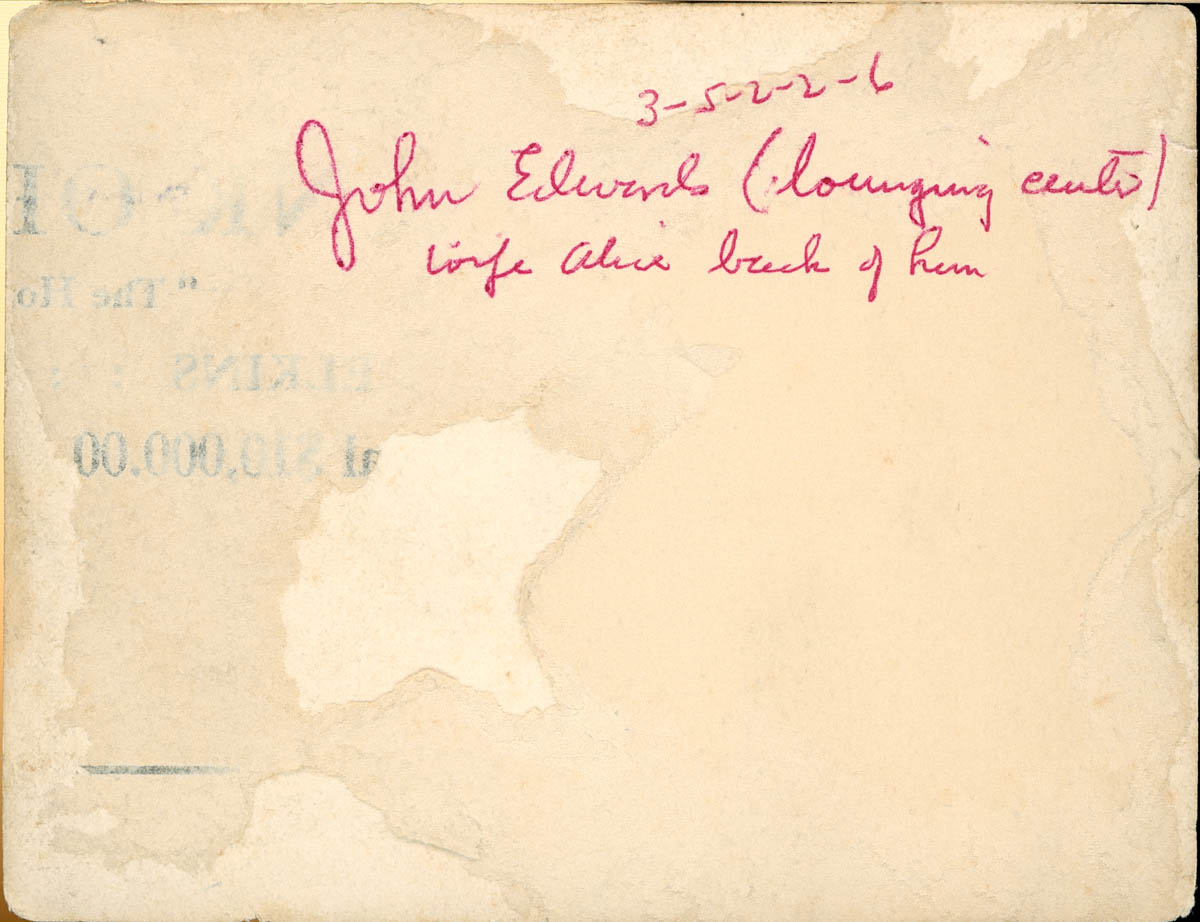 3-5-2-2-6
John Edwards (lounging center)
wife Alice back of him
NK OF
"The Ho
ELKINS : :
al $10,000.00